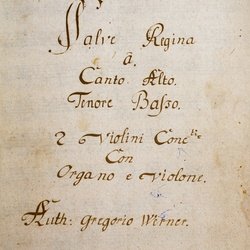 Salve Regina
à.
Canto Alto.
Tenore Basso.
2 Violini Conc:ti
Con
Organo e Violone.
Auth: Gregorio Werner.